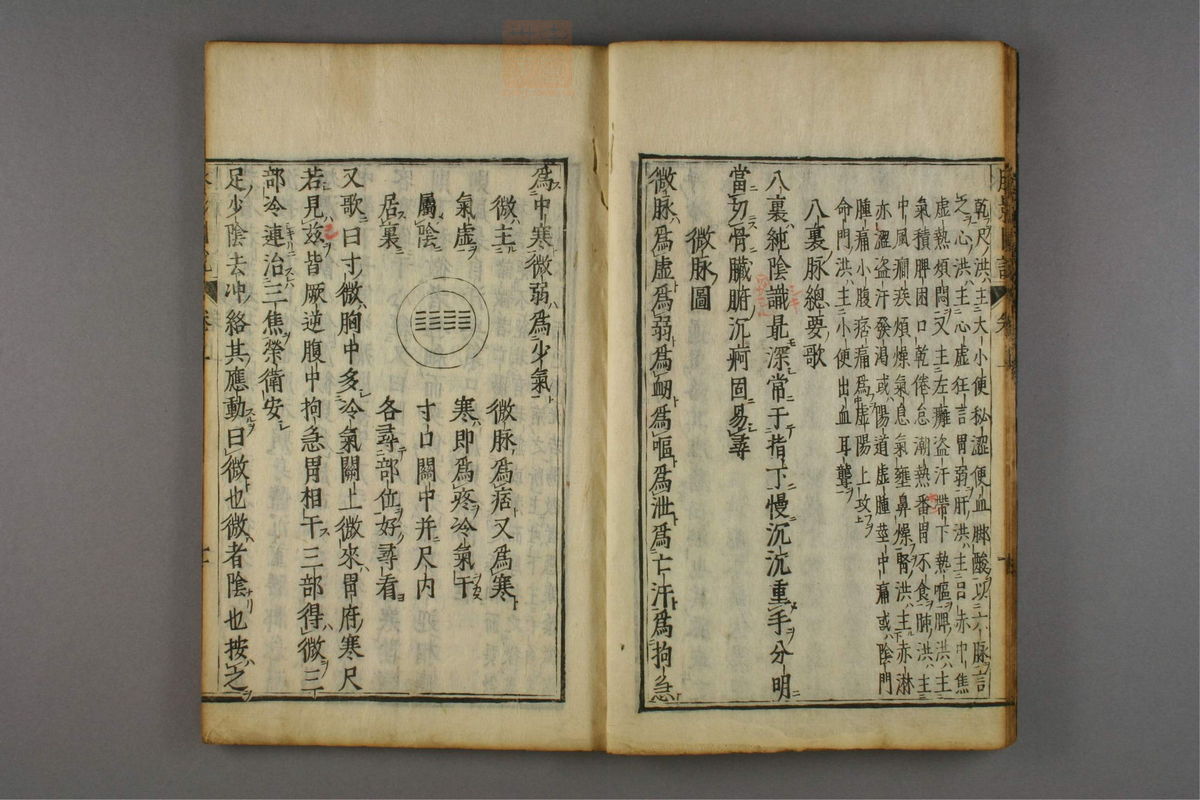 乾尺洪主大小便秘澀便血脾酸以六脉言
之心洪主心虛狂言胃弱肝洪主呂赤中焦
虛熱煩悶又主左癱盜汗帶下熱嘔脾洪主
氣積脾困口乾倦怠潮熱番胃不食肺洪主
中風癎疾煩燥氣息氣壅鼻燥腎洪主赤淋
亦澀盜汗發渴或陽道虛腫莖中痛或陰門
腫痛小腹痞痛為中虛陽上攻
命門洪主小便出血耳聾
八裏脉總要歌
八裏純陰識最深常于指下慢沉沉重手分明
當切骨臟腑沉痾固易尋
微脉圖
微脉為虛為弱為衂為嘔為泄為亡汗為拘急
為中寒微弱為少氣
微主 微脉為痞又為寒
氣虛 寒即為疼冷氣干
屬陰 寸口關中并尺內
居裏 各尋部位好尋看
又歌曰寸微胸中多冷氣關上微來胃府寒尺
若見茲皆厥逆腹中拘急胃相干三部得微三
部冷連治三焦榮衛安
足少陰去冲絡其應動曰微也微者陰也按之